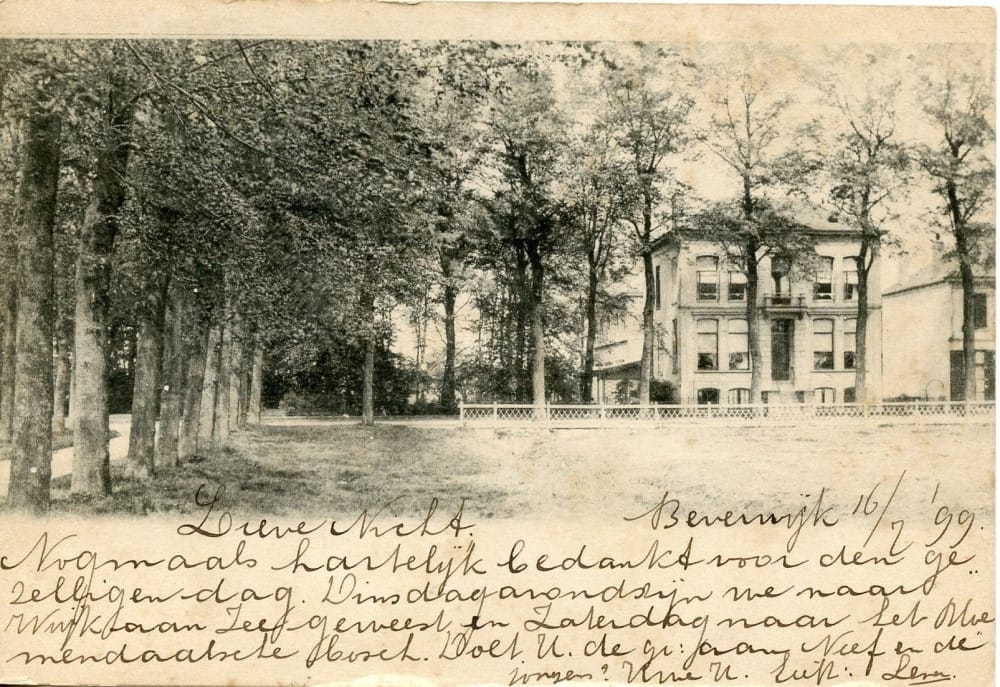 Lieve Nicht. Beverwijk 16/7 '99.
Nogmaals hartelijk bedankt voor den ge
zelligen dag. Dinsdagavond zijn we naar
Wijk aan Zee geweest en Zaterdag naar het Bloe
mendaalsche Bosch. Doet U. de gr: aan Neef en de
jongens? Uwe U.